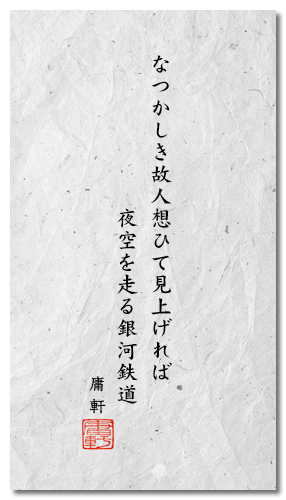 なつかしき故人想ひて見上げれば
夜空を走る銀河鉄道
庸軒
庸軒